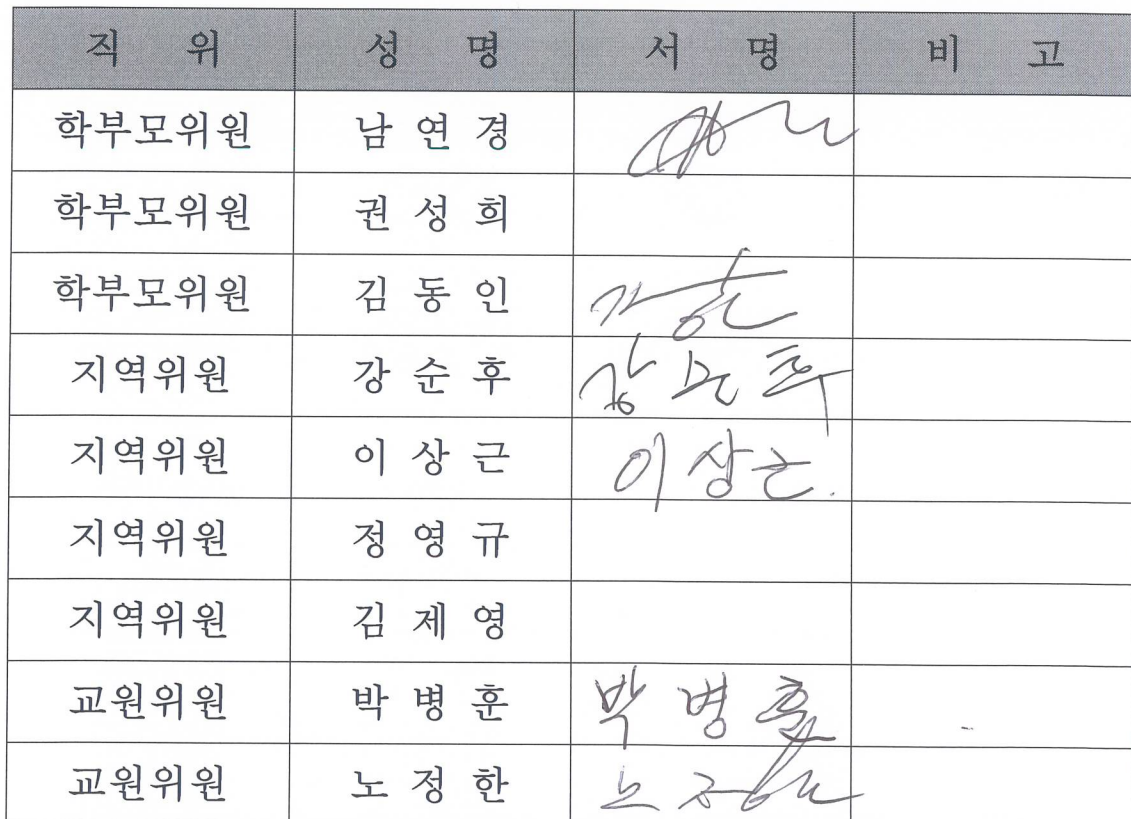 직 위 성 명 서 명 비 고
학부모위원 남 연 경
학부모위원 권 성 희
학부모위원 김 동 인
지역위원 강 순 후 강순후
지역위원 이 상 근 이상근.
지역위원 정 영 규
지역위원 김 제 영
교원위원 박 병 훈 박병훈
교원위원 노 정 한